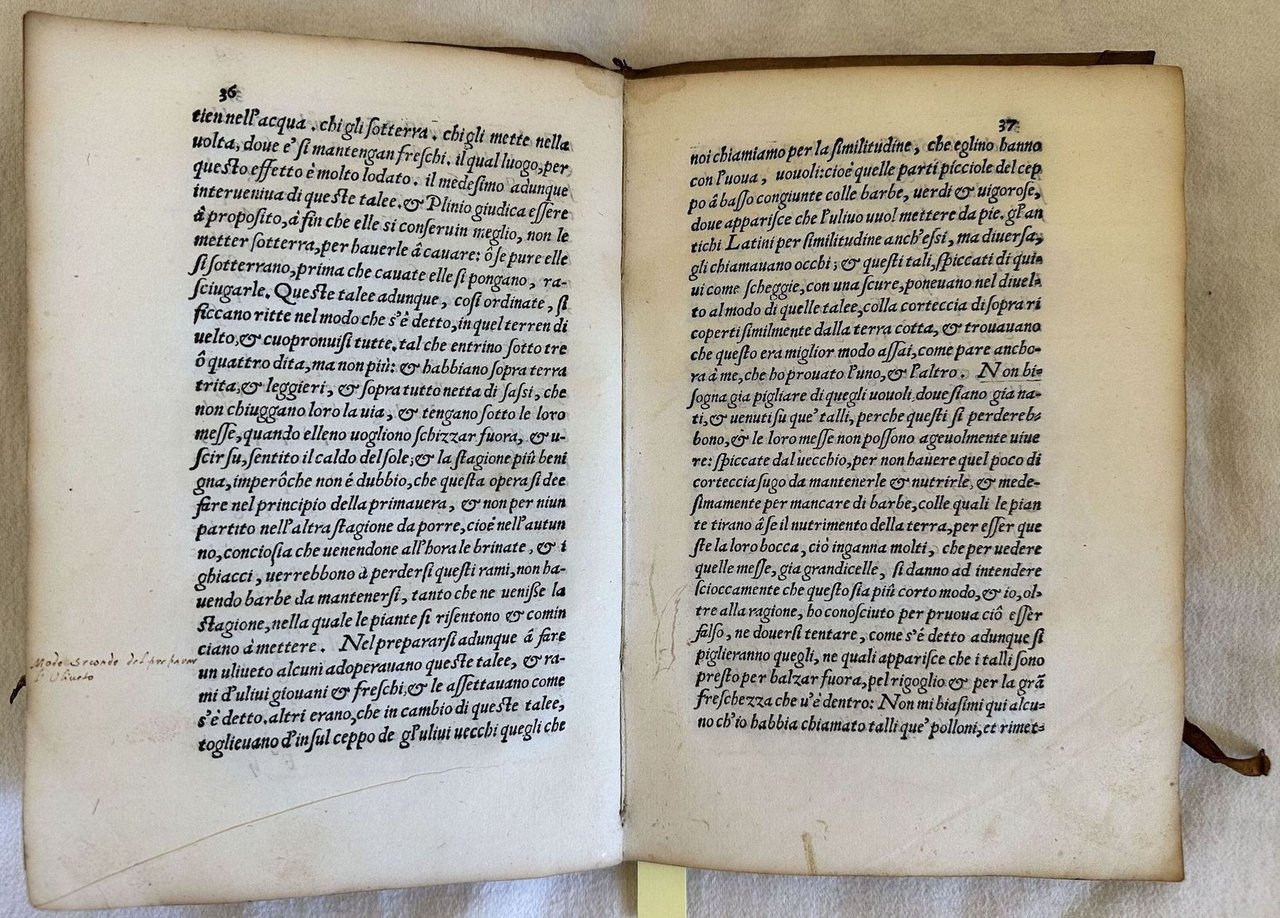 36
tien nell'acqua. chi gli sotterra. chi gli mette nella
uolta, doue e' si mantengan freschi. il qual luogo, per
questo effetto è molto lodato. il medesimo adunque
interueniua di queste talee. & Plinio giudica essere
à proposito, à fin che elle si conseruin meglio, non le
metter sotterra, per hauerle à cauare: ò se pure elle
si sotterrano, prima che cauate elle si pongano, ra-
sciugarle. Queste talee adunque, cosi ordinate, si
ficcano ritte nel modo che s'è detto, in quel terren di
uelto, & cuopronuisi tutte. tal che entrino sotto tre
ô quattro dita, ma non più: & habbiano sopra terra
trita, & leggieri, & sopra tutto netta di sassi, che
non chiuggano loro la uia, & tengano sotto le loro
messe, quando elleno uogliono schizzar fuora, & u-
scir su, sentito il caldo del sole; & la stagione più beni
gna, imperòche non é dubbio, che questa opera si dee
fare nel principio della primauera, & non per niun
partito nell'altra stagione da porre, cioé nell'autun
no, conciosia che uenendone all'hora le brinate, & i
ghiacci, uerrebbono à perdersi questi rami, non ha-
uendo barbe da mantenersi, tanto che ne uenisse la
stagione, nella quale le piante si risentono & comin
ciano à mettere. Nel prepararsi adunque á fare
Modo secondo del preparar
l'Uliueto
un uliueto alcuni adoperauano queste talee, & ra-
mi d'ulíui giouani & freschi, & le assettauano come
s'è detto. altri erano, che in cambio di queste talee,
toglieuano d'in sul ceppo de gl'uliui uecchi quegli che
37
noi chiamiamo per la similitudine, che eglino hanno
con l'uoua, uouoli: cioé quelle parti picciole del cep
po á basso congiunte colle barbe, uerdi & uigorose,
doue apparisce che l'uliuo uuol mettere da pie. gl'an
tichi Latini per similitudine anch'essi, ma diuersa,
gli chiamauano occhi; & questi tali, spiccati di qui-
ui come scheggie, con una scure, poneuano nel diuel-
to al modo di quelle talee, colla corteccia di sopra ri
coperti similmente dalla terra cotta, & trouauano
che questo era miglior modo assai, come pare ancho-
ra à me, che ho prouato l'uno, & l'altro. Non bi-
sogna gia pigliare di quegli uouoli, doue siano gia na-
ti, & uenuti su que' talli, perche questi si perdereb-
bono, & le loro messe non possono ageuolmente uiue
re: spiccate dal uecchio, per non hauere quel poco di
corteccia sugo da mantenerle & nutrirle, & mede-
simamente per mancare di barbe, colle quali le pian
te tirano á se il nutrimento della terra, per esser que
ste la loro bocca, ciò inganna molti, che per uedere
quelle messe, gia grandicelle, si danno ad intendere
scioccamente che questo sia più corto modo, & io, ol-
tre alla ragione, ho conosciuto per pruoua ciô esser
falso, ne douersi tentare, come s'é detto adunque si
piglieranno quegli, ne quali apparisce che i talli sono
presto per balzar fuora, pel rigoglio & per la grã
freschezza che u'è dentro: Non mi biasimi qui alcu-
no ch'io habbia chiamato talli que' polloni, et rimet-